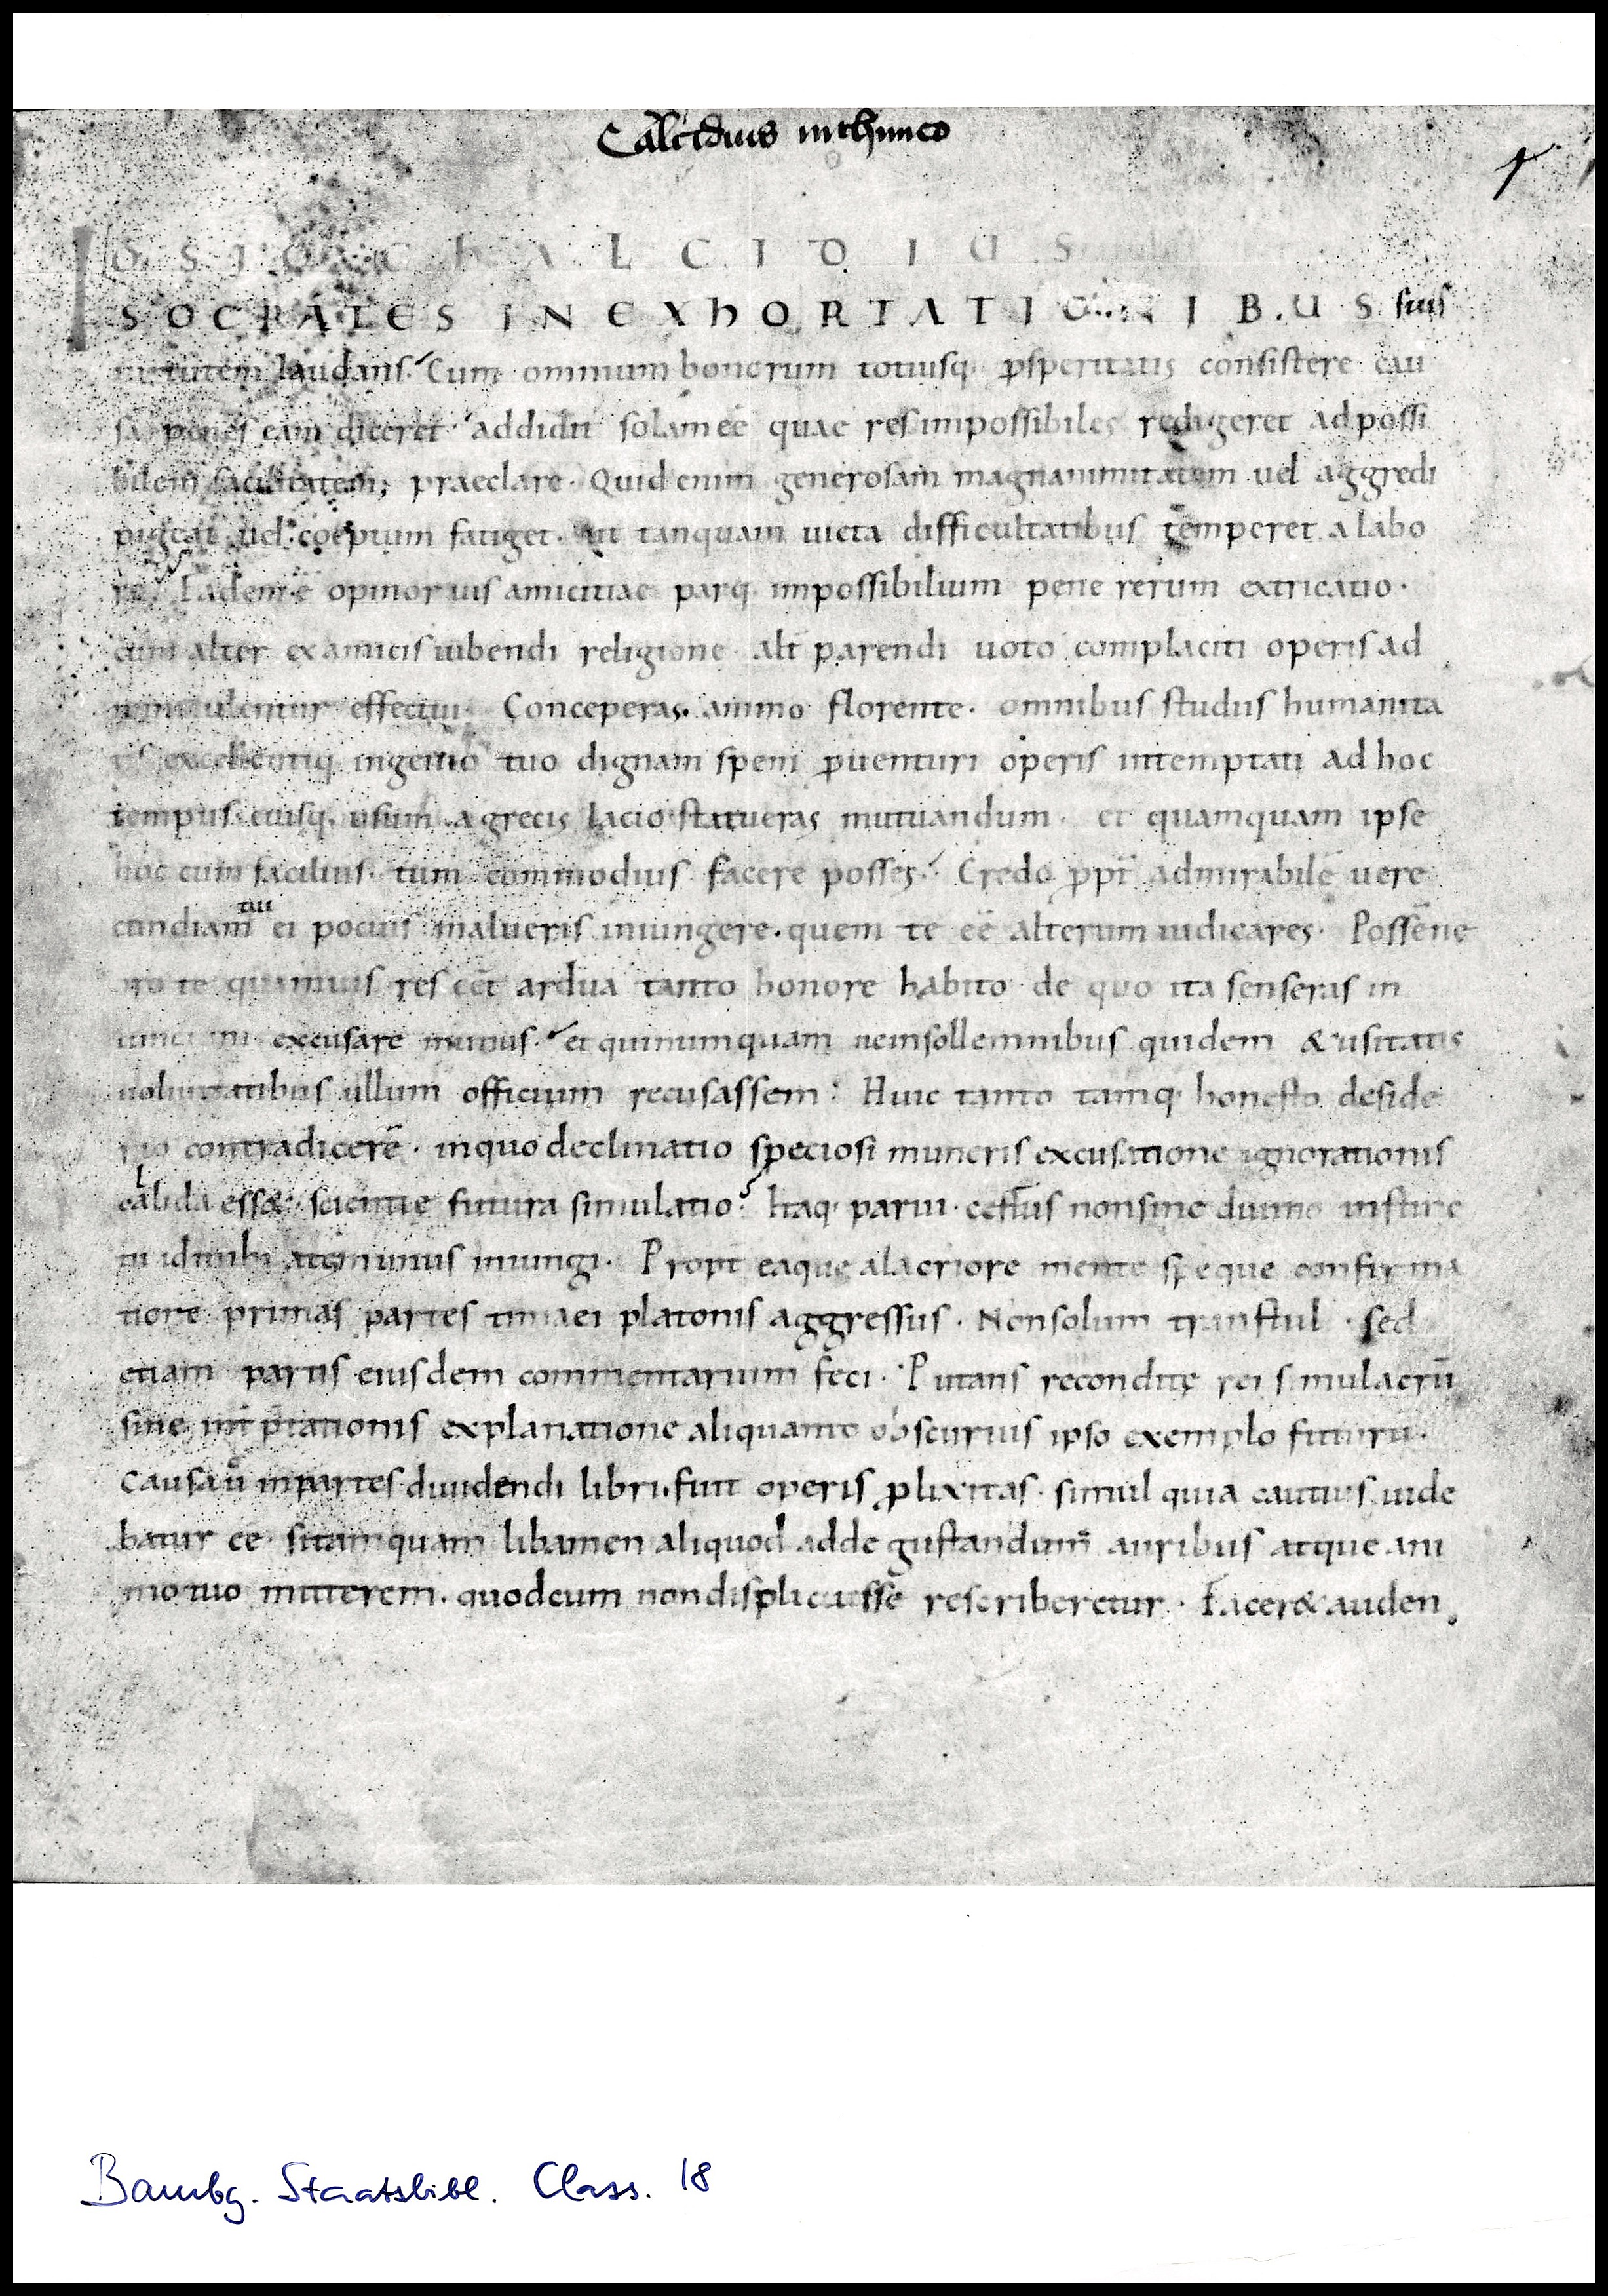 Calcidius in thimeo
OSIO CHALCIDIUS
ISOCRATES IN EXHORTATIONIBUS suis
uirtutem laudans. Cum omnium bonorum totiusq; ꝓsperitatis consistere cau
sa penes eam diceret addidit solam eē quae res impossibiles redigeret ad possi
bilem facilitatem; praeclare. Quid enim generosam magnanimitatem uel aggredi
pigeat uel coeptum fatiget. ut tanquam uicta difficultatibus temperet a labo
re. Eadem ē opinor uis amicitiae parq; impossibilium pene rerum extricatio.
cum alter ex amicis iubendi religione alt̄ parendi uoto complaciti operis ad
miniculentur effectui. Conceperas animo florente. omnibus studiis humanita
tis excellentiq; ingenio tuo dignam spem ꝓuenturi operis intemptati ad hoc
tempus eiusq; usum a grecis lacio statueras mutuandum. et quamquam ipse
hoc cum facilius. tum commodius facere posses. Credo ꝓpt̄ admirabilē uere
cundiam ei pocius malueris iniungere. quem te eē alterum iudicares. Possēne
oro te quamuis res eēt ardua tanto honore habito de quo ita senseras in
iunctum excusare munus. et qui numquam ne in sollemnibus quidem & usitatis
uoluntatibus ullum officium recusassem: Huic tanto tamq; honesto deside
rio contradicerē. in quo declinatio speciosi muneris excusatione ignorationis
calida ess& scientię futura simulatio? Itaq; parui. cert̄us non sine diuino instinc
tu id mihi a te munus iniungi. Propt̄ eaque alacriore mente speque confirma
tiore primas partes timaei platonis aggressus. Non solum transtuli. sed
etiam partis eiusdem commentarium feci. Putans reconditę rei simulacrū
sine int̄p̄tationis explanatione aliquanto obscurius ipso exemplo futurū.
Causa ū in partes diuidendi libri. fuit operis ꝓlixitas. simul quia cautius uide
batur eē. si tamquam libamen aliquod ad degustandum auribus atque ani
mo tuo mitterem. quod cum non displicuissē rescriberetur. Facer& auden
Bambg. Staatsbibl. Class. 18